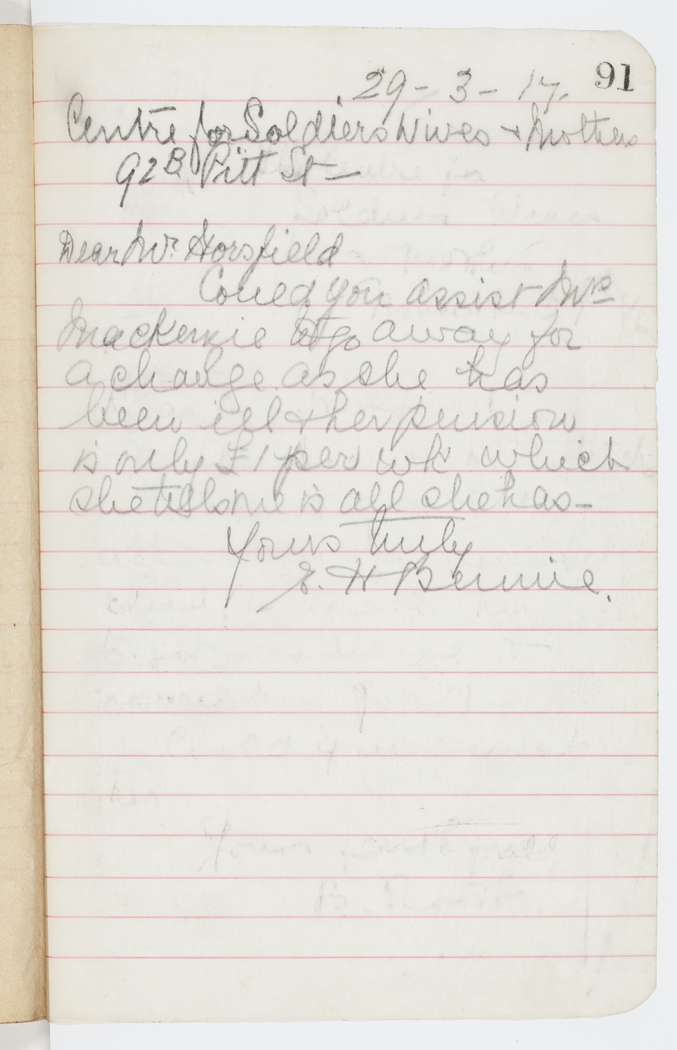 91
29 - 3 - 17.
Centre for Soldiers Wives + Mothers
92B Pitt St —
Dear Mr Horsfield
Could you assist Mrs
Mackenzie to go away for
a change as she has
been ill & her pension
is only £1 per wk which
she tells me is all she has —
Yours truly
E. H Bennie.